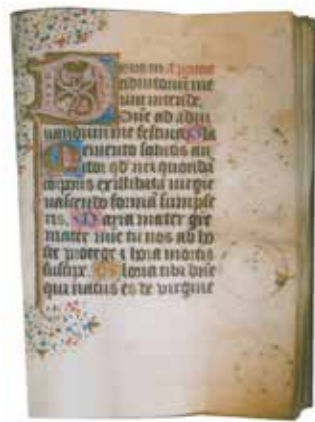 Deus in
adiutorium me
um intende.
Dñe ad adiu
uandum me festina. Gla
Memento salutis au
ctor qd nri quonda
corporis ex illibata uirgie
nascendo formā sumpse
ris. Maria mater gre
mater mie tu nos ab ho
ste protege & hora mortis
suscipe. Gloria tibi dñe
qui natus es de virgine